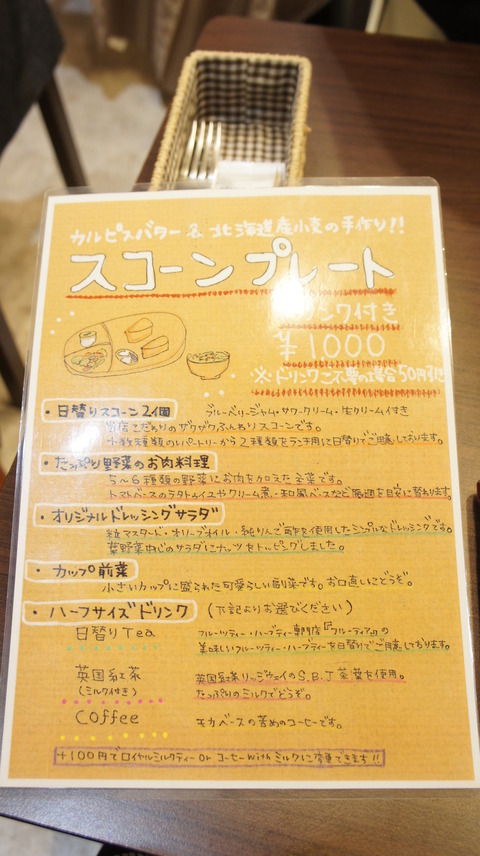 カルピスバター & 北海道産小麦の手作り!!
スコーンプレート
ドリンク付き
¥1000
※ドリンクご不要の場合50円引き
・日替りスコーン2個
ブルーベリージャム・サワークリーム・生クリーム付き
当店こだわりのザクザクふんわりスコーンです。
十数種類のレパートリーから2種類をランチ用に日替りでご用意しております。
・たっぷり野菜のお肉料理
5〜6種類の野菜にお肉を加えた主菜です。
トマトベースのラタトゥイユやクリーム煮・和風ベースなど
・オリジナルドレッシングサラダ
粒マスタード・オリーブオイル・純りんご酢を使用したシンプルなドレッシングです。
葉野菜中心のサラダにナッツをトッピングしました。
・カップ前菜
小さいカップに盛られた可愛らしい副菜です。お口直しにどうぞ。
・ハーフサイズドリンク (下記よりお選びください)
日替りTea
フルーツティー・ハーブティー専門店『フルーティア』の
美味しいフルーツティー・ハーブティーを日替りでご用意しております。
英国紅茶
(ミルク付き)
英国紅茶リッジウェイのS.B.J茶葉を使用。
たっぷりのミルクでどうぞ。
Coffee
モカベースの苦めのコーヒーです。
+100円でロイヤルミルクティー or コーヒー with ミルクに変更できます!!